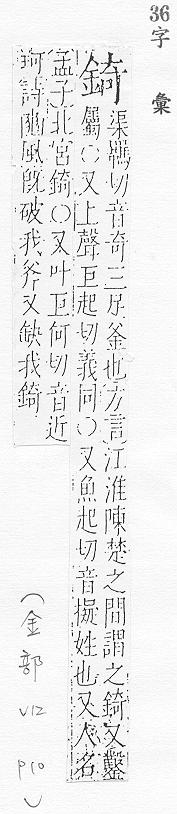 36字彙
錡 渠羈切音奇三足釜也方言江淮陳楚之間謂之錡又鑿
屬○又上聲巨起切義同○又魚起切音擬姓也又人名
孟子北宮錡○又叶巨何切音近
詩豳風旣破我斧又缺我錡
(金部 V12 P10)